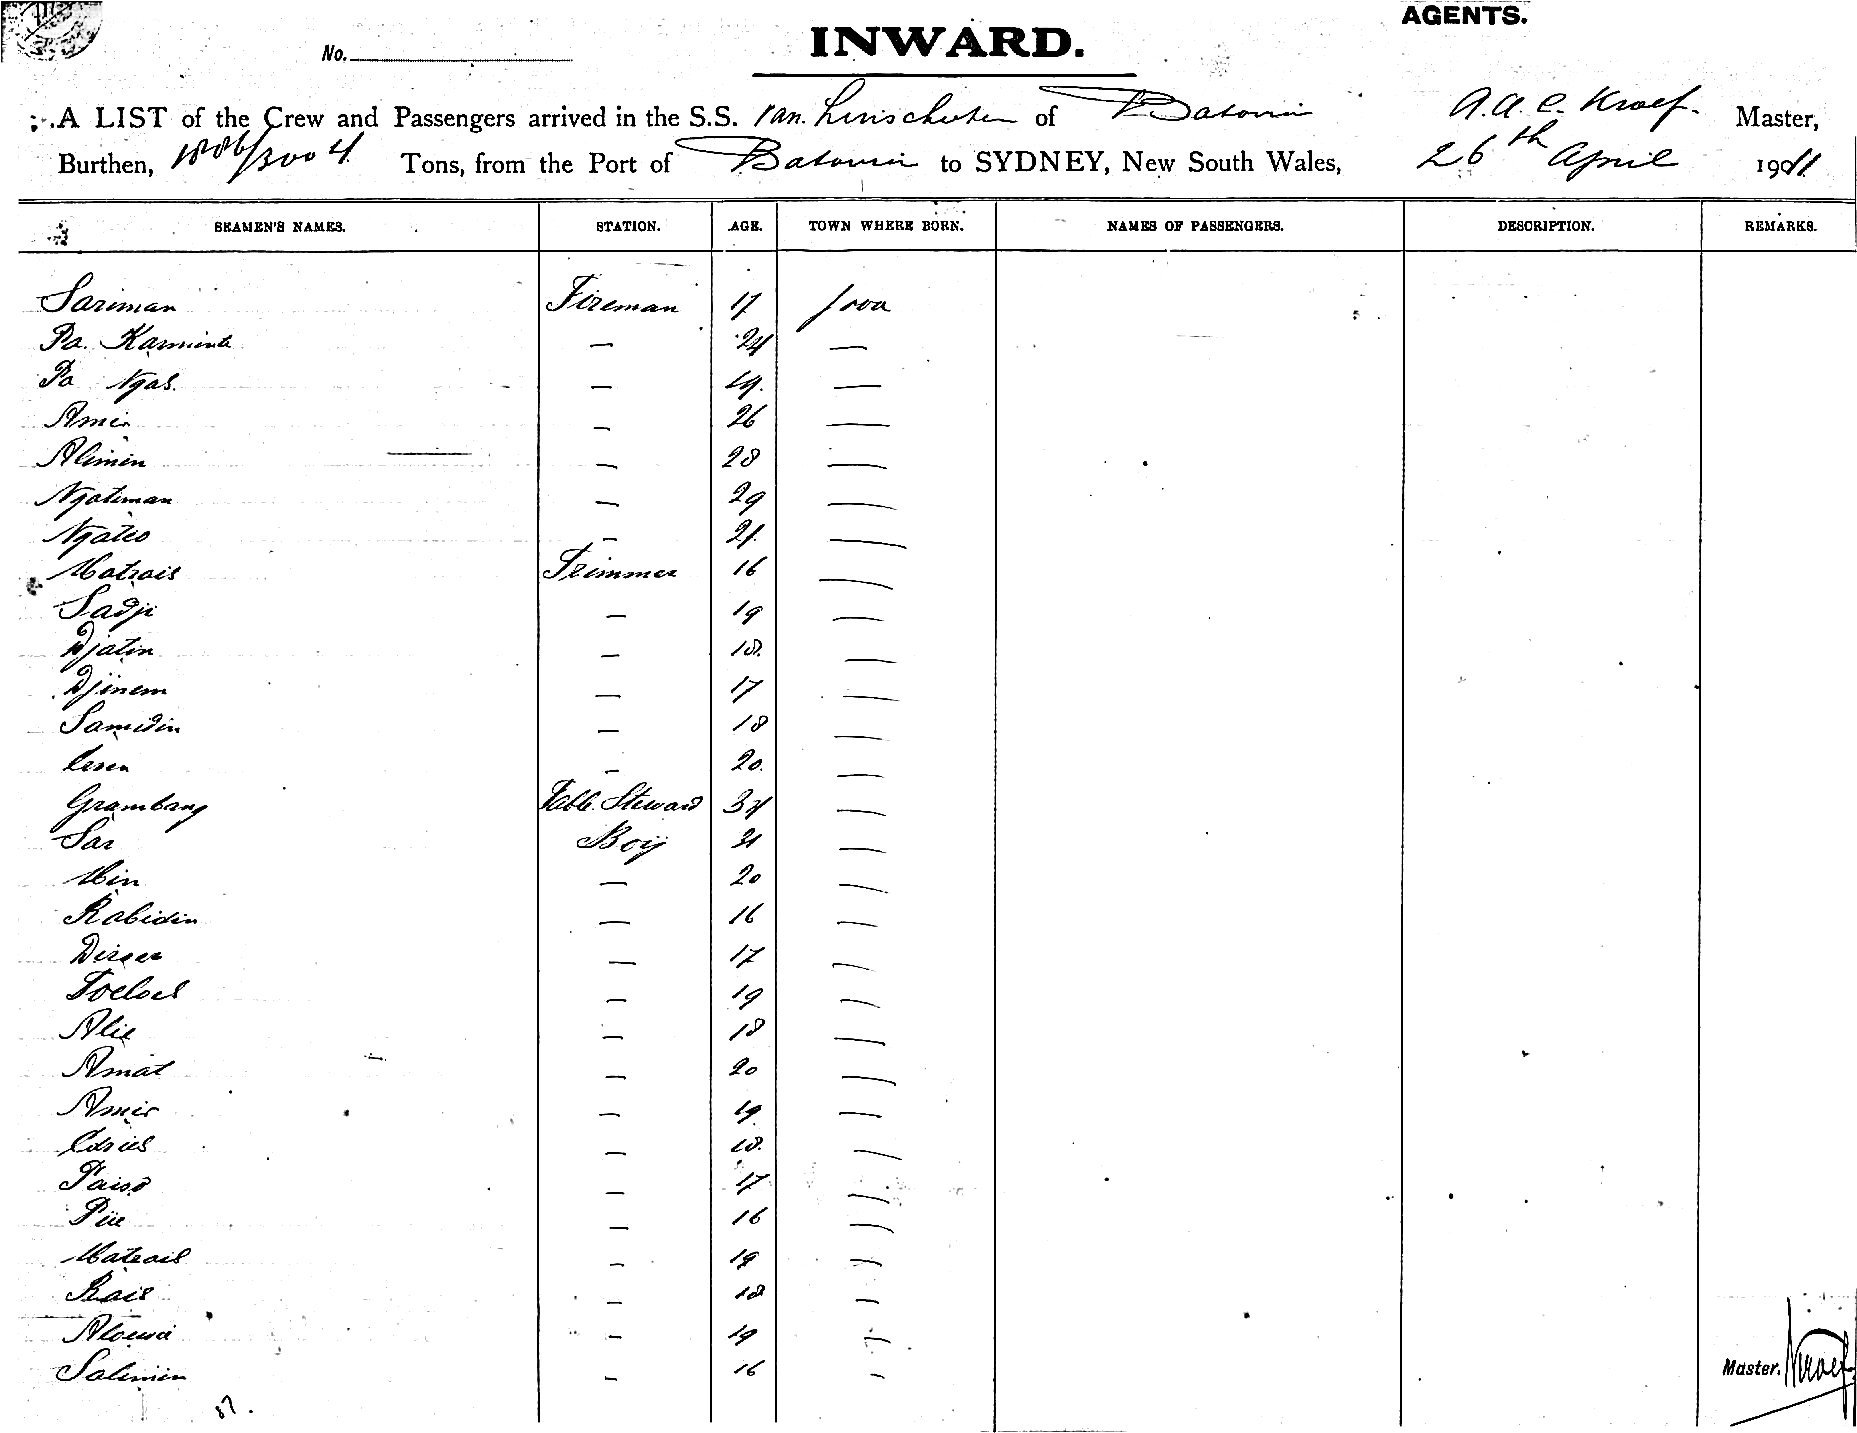 AGENTS.
No. INWARD.
A LIST of the Crew and Passengers arrived in the S.S. van Linschoten of Batavia A. A. C. Kroef. Master,
Burthen, 1806/3004 Tons, from the Port of Batavia to SYDNEY, New South Wales, 26th April 1911
SEAMEN'S NAMES. STATION. AGE. TOWN WHERE BORN. NAMES OF PASSENGERS. DESCRIPTION. REMARKS.
Sariman Fireman 17 Java
Pa. Karmina — 24 —
Pa Ngas. — 19. —
Amir — 26 —
Alimin — 28 —
Ngatiman — 29 —
Ngateo — 21. —
Matrais Trimmer 16 —
Sadji — 19 —
Djatin — 18. —
Djinem — 17 —
Samidin — 18 —
— 20. —
Grambang Table Steward 34 —
Sar Boy 21 —
Min — 20 —
Rabidin — 16 —
— 17 —
Toeloes — 19 —
Alie — 18 —
Amat — 20 —
Amir — 19 —
Idries — 18. —
Paiso — 17 —
— 16 —
Matrais — 19 —
Rais — 18 —
— 19 —
Salimin — 16 —
Master. Kroef
87.